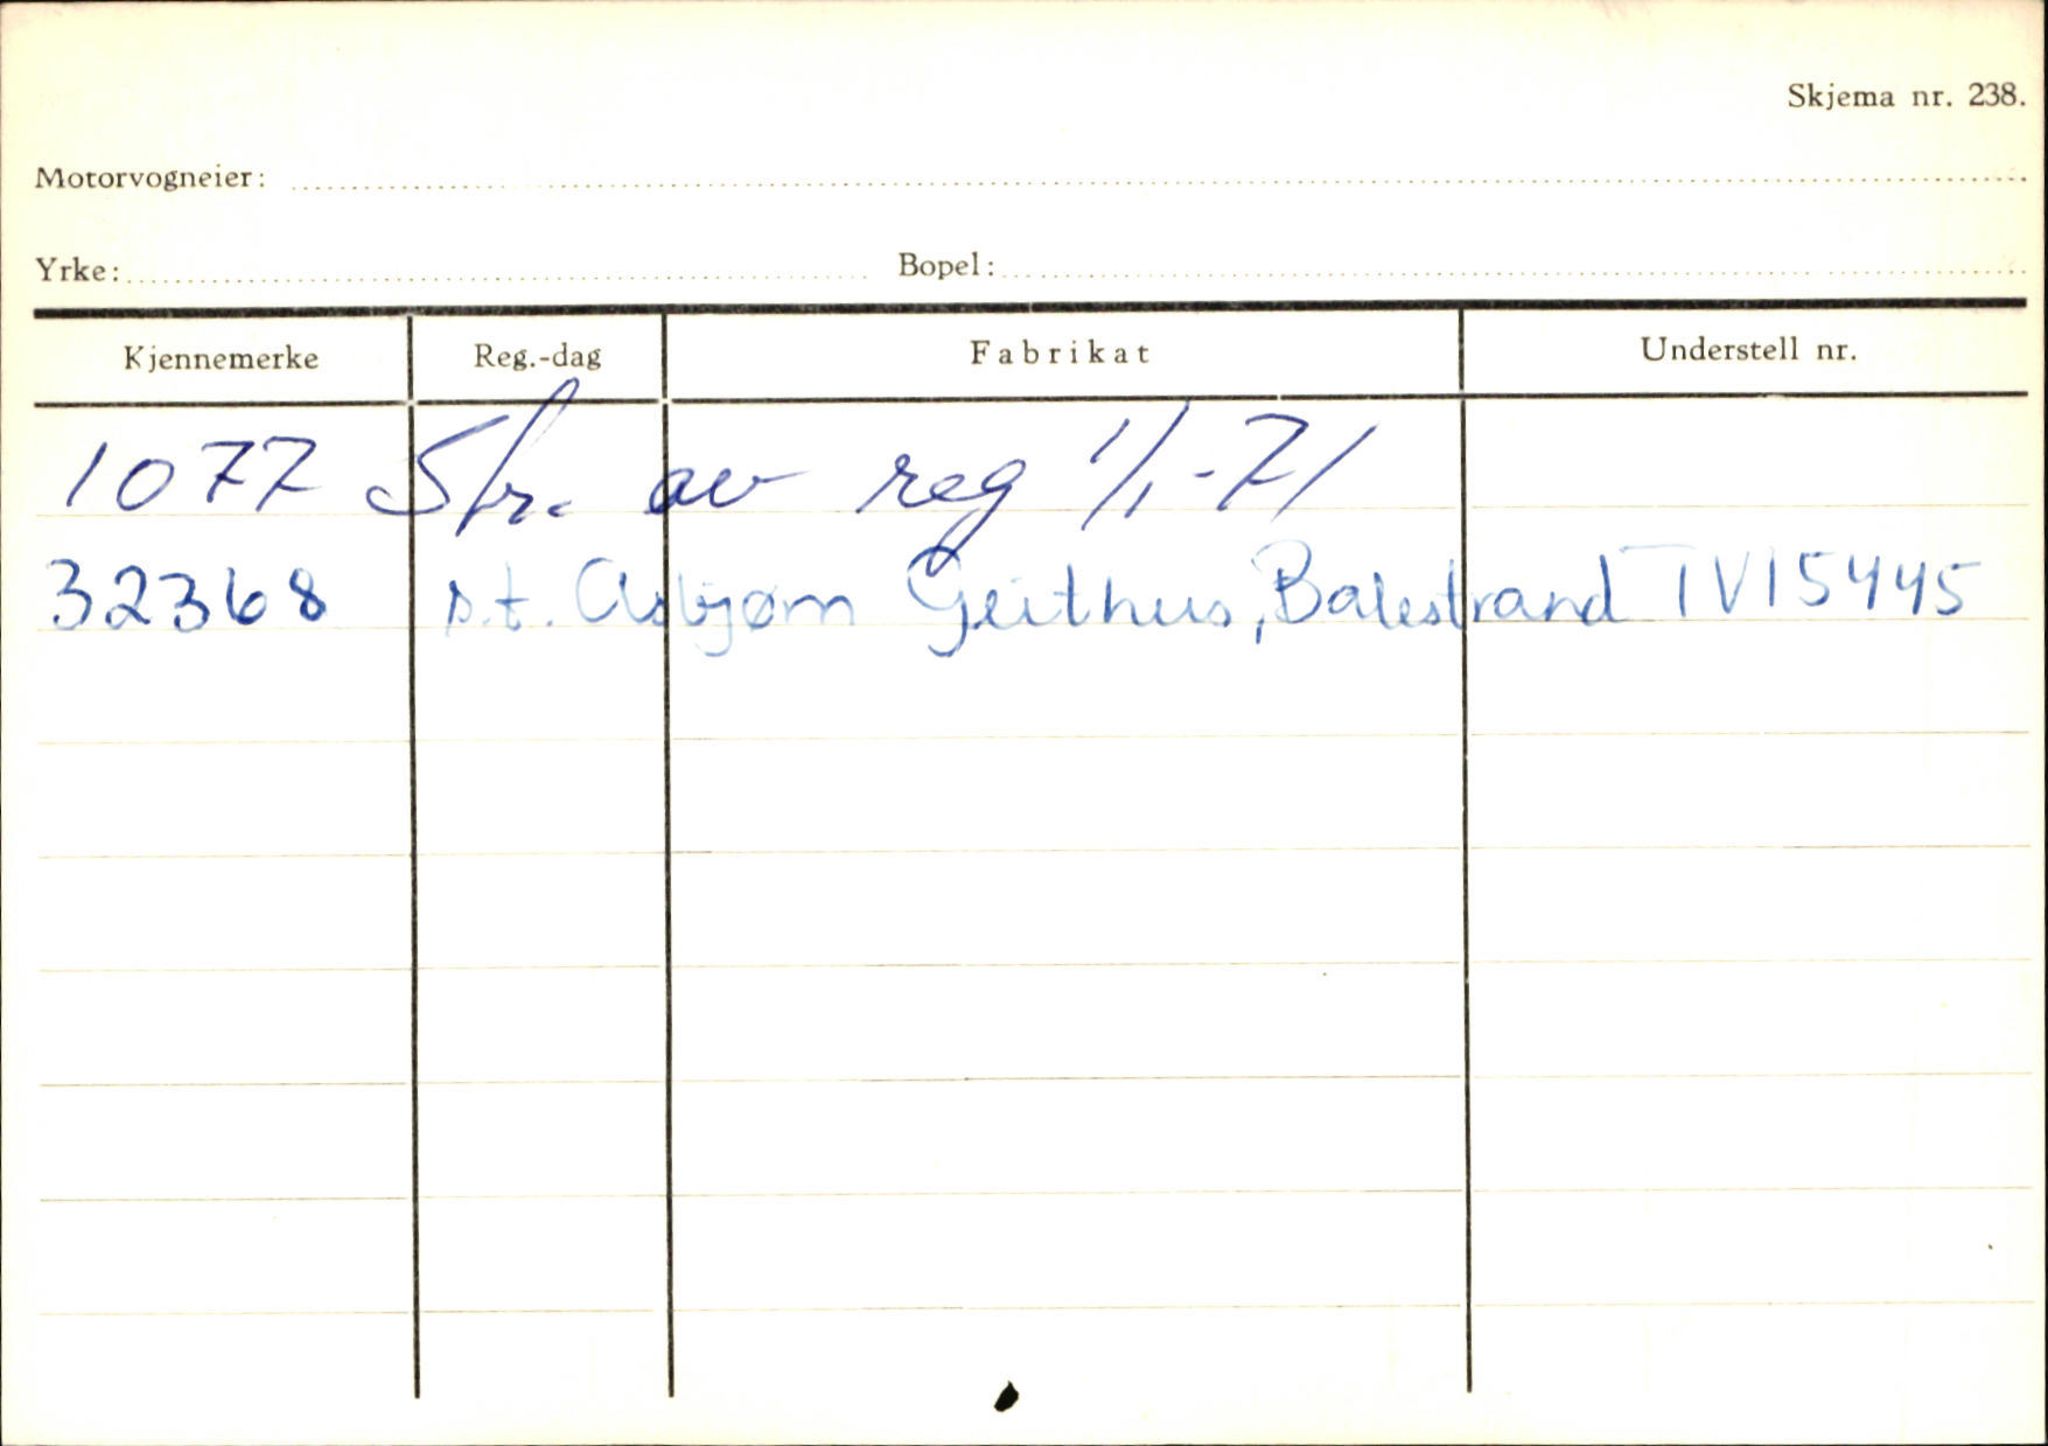 Skjema nr. 238.
Motorvogneier:
Yrke: Bopel:
Kjennemerke Reg.-dag Fabrikat Understell nr.
1077 Str. av reg 1/1-71
32368 s.t. Asbjørn Geithus, Balestrand TV15445